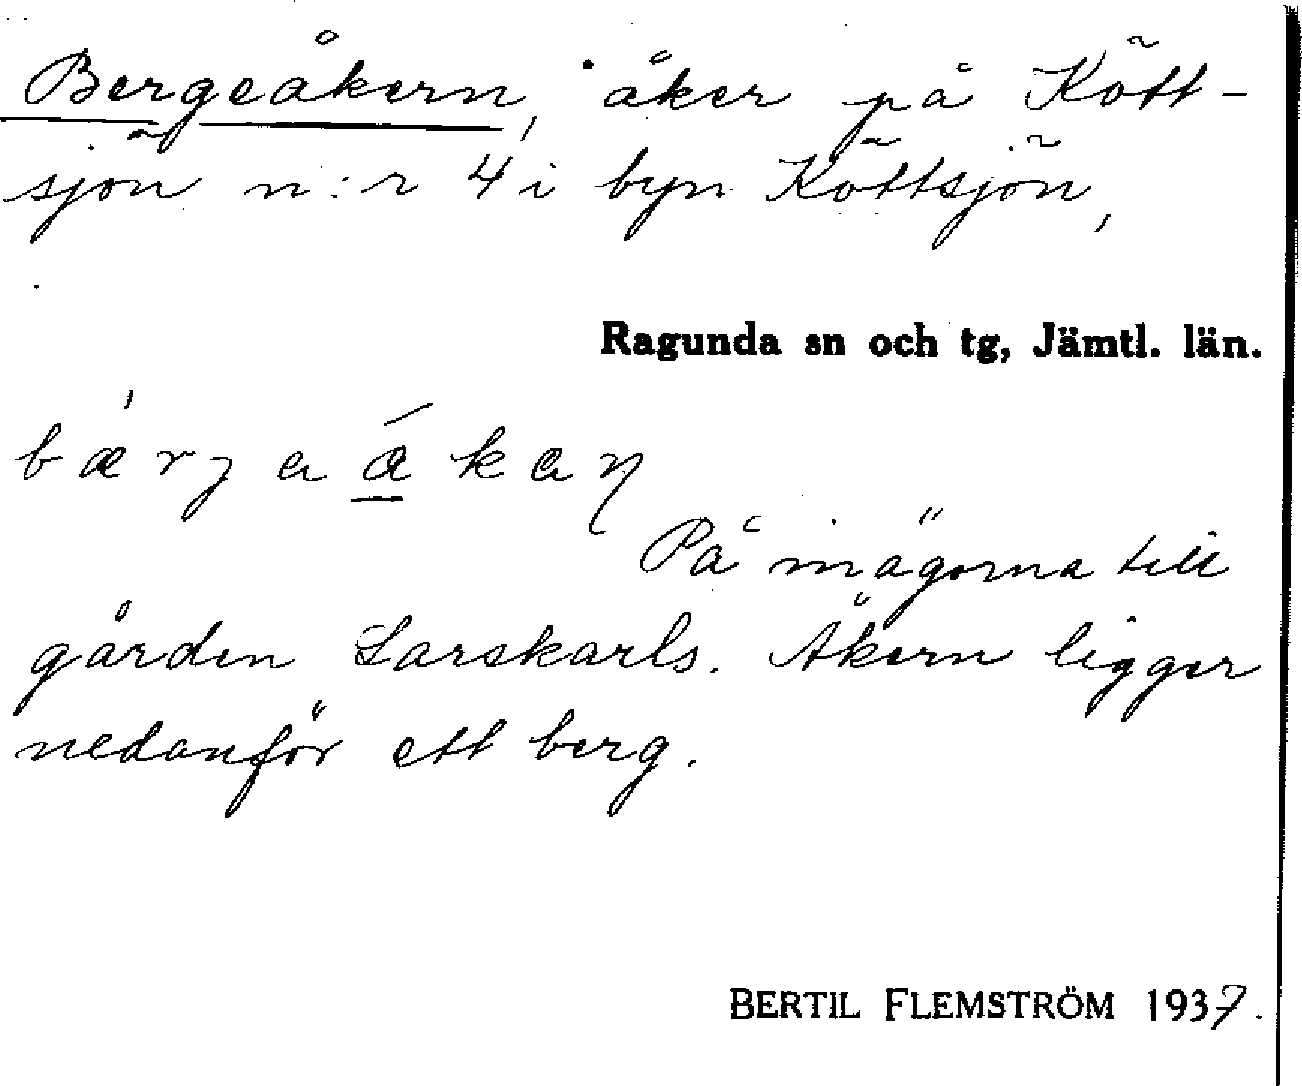 Bergeåkern, åker på Kött-
sjön n:r 4 i byn Köttsjön,
Ragunda sn och tg, Jämtl. län.
På inägorna till
gården Larskarls. Åkern ligger
nedanför ett berg.
BERTIL FLEMSTRÖM 1937.